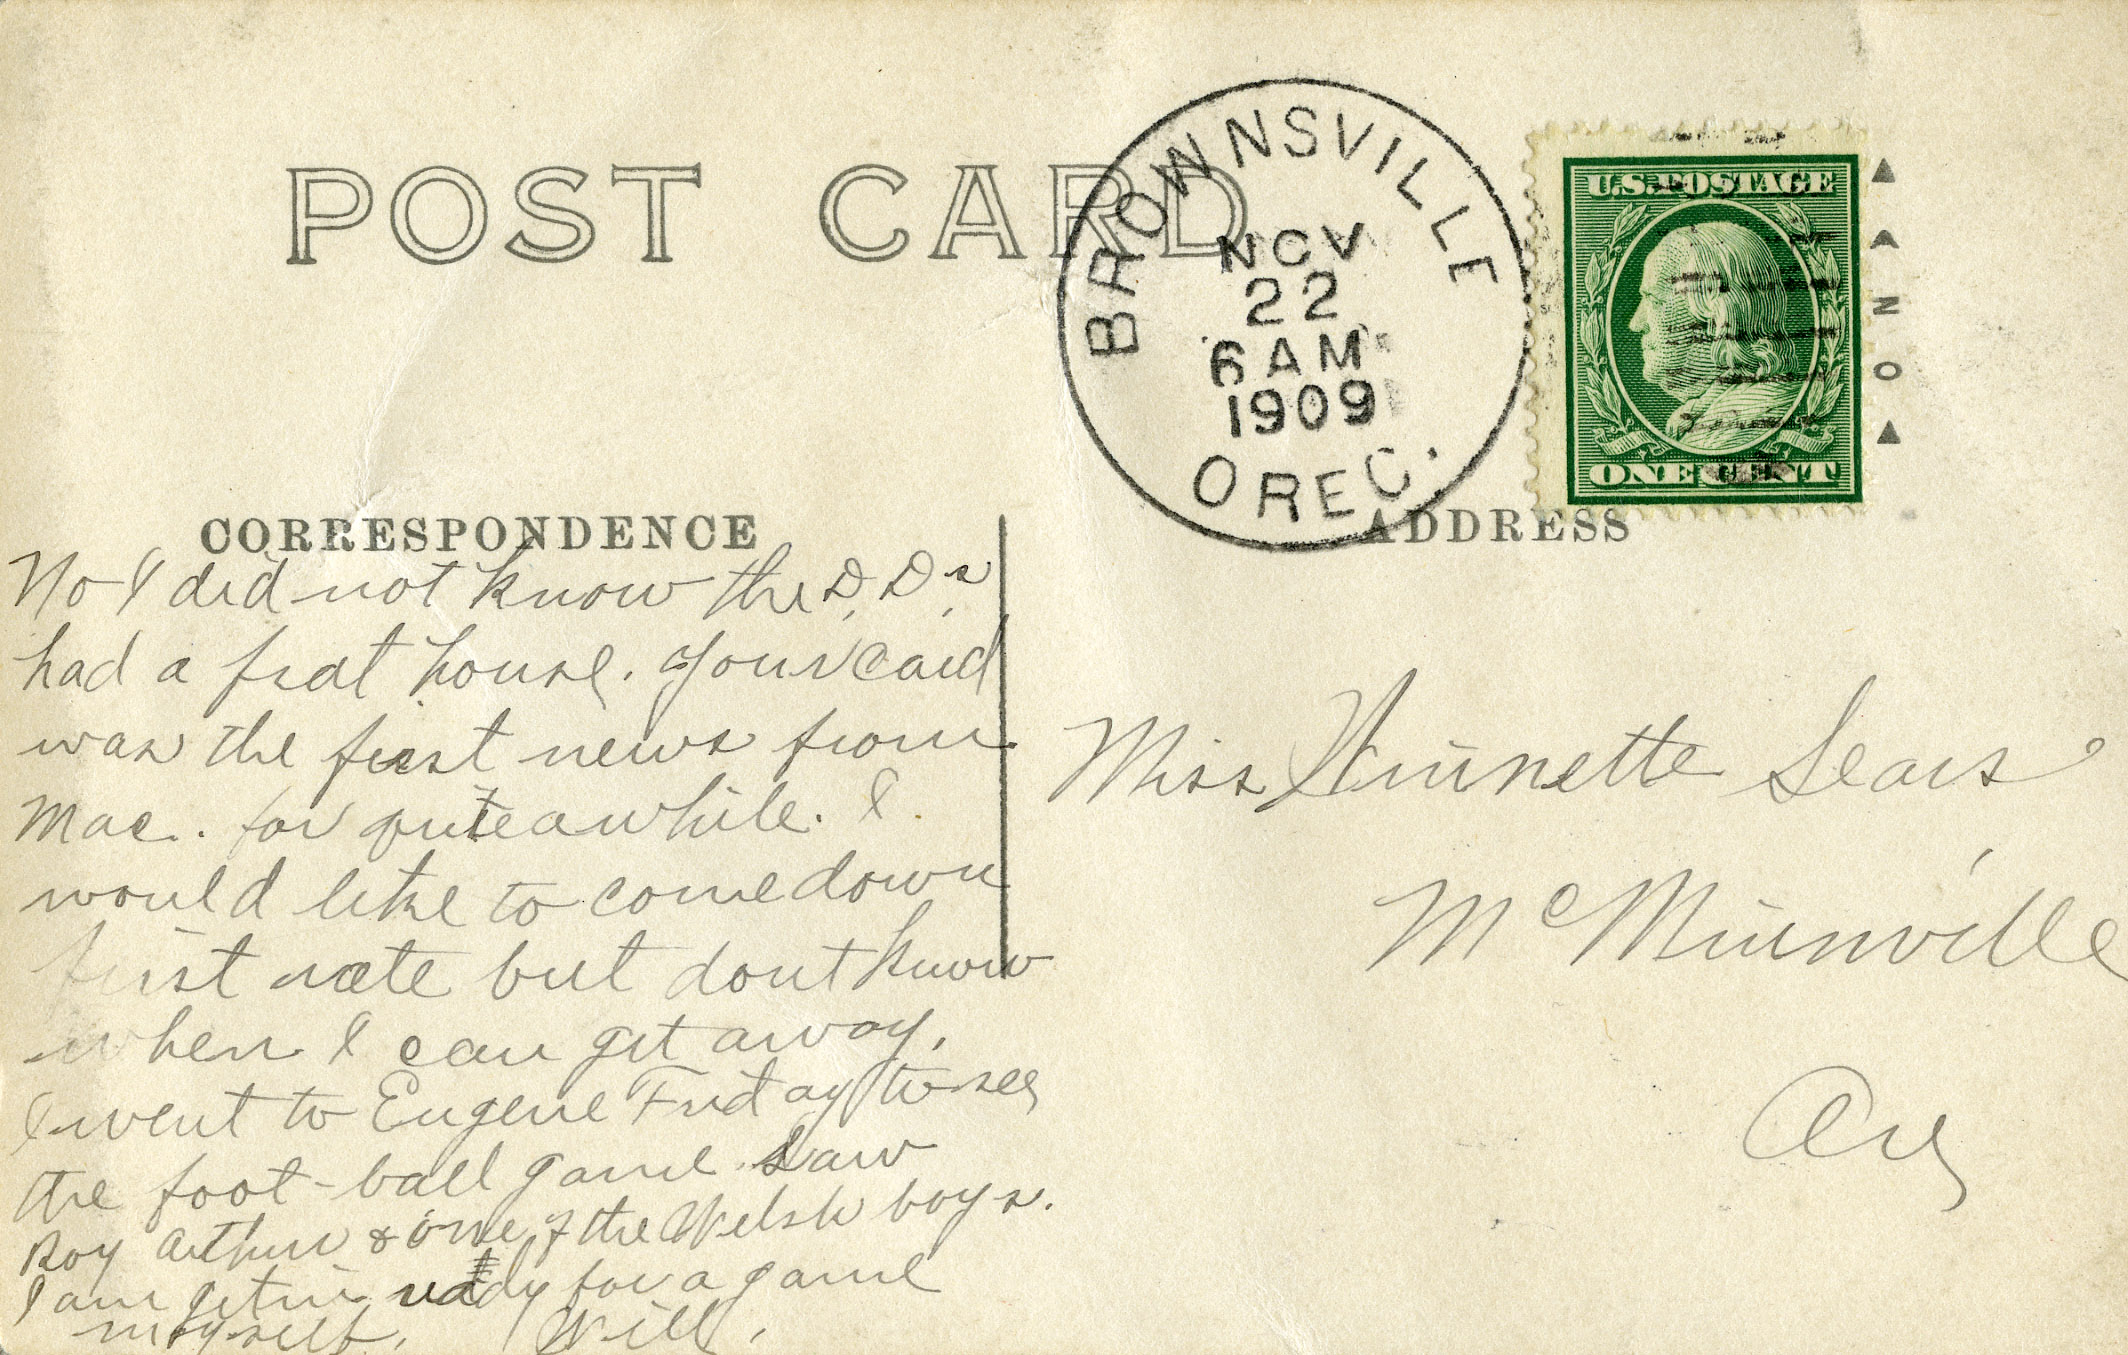 POST CARD
BROWNSVILLE
NOV
22
6 AM
1909
OREG.
U.S. POSTAGE
ONE CENT
CORRESPONDENCE
ADDRESS
No I did not know the D.D.s
had a frat house. Your card
was the first news from
Mac. for quite awhile. I
would like to come down
first rate but dont know
when I can get away.
I went to Eugene Friday to see
the foot-ball game. Saw
Roy Arthur & one of the Welsh boys.
I am getin ready for a game
myself. Will.
Miss Winnette Sears
McMinnville
Ore